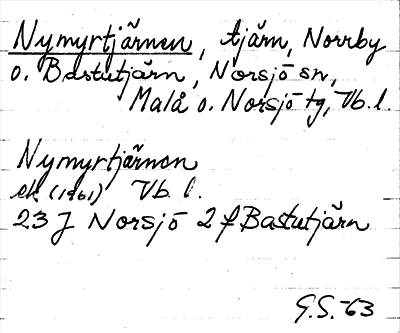 Nymyrtjärnen, tjärn, Norrby
o. Bastutjärn, Norsjö sn,
Malå o. Norsjö tg, Vb. l.
Nymyrtjärnen
ek (1961) Vb. l.
23 J Norsjö 2 f Bastutjärn
G.S. -63